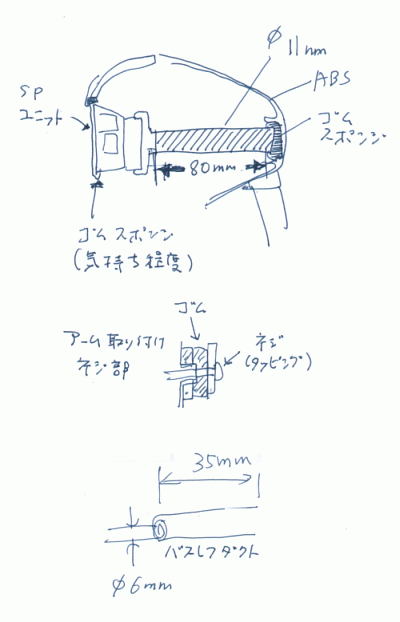 φ11mm
ABS
SP
ユニット
ゴム
スポンジ
80mm
ゴムスポンジ
(気持ち程度)
ゴム
アーム取り付け
ネジ部
ネジ
(タッピング)
35mm
バスレフダクト
φ6mm